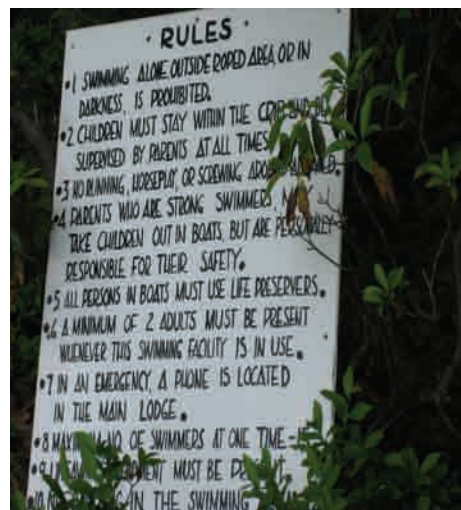 · RULES ·
• 1 SWIMMING ALONE, OUTSIDE ROPED AREA, OR IN
DARKNESS, IS PROHIBITED.
• 2 CHILDREN MUST STAY WITHIN THE
SUPERVISED BY PARENTS AT ALL TIMES
• 3 NO RUNNING, HORSEPLAY, OR SCREWING
• 4 PARENTS WHO ARE STRONG SWIMMERS, MAY
TAKE CHILDREN OUT IN BOATS, BUT ARE PERSONALLY
RESPONSIBLE FOR THEIR SAFETY.
• 5 ALL PERSONS IN BOATS MUST USE LIFE PRESERVERS.
• 6 A MINIMUM OF 2 ADULTS MUST BE PRESENT
WHENEVER THIS SWIMMING FACILITY IS IN USE.
• 7 IN AN EMERGENCY, A PHONE IS LOCATED
IN THE MAIN LODGE.
• 8 NO. OF SWIMMERS AT ONE TIME -
• 9 MUST BE
• 10 IN THE SWIMMING